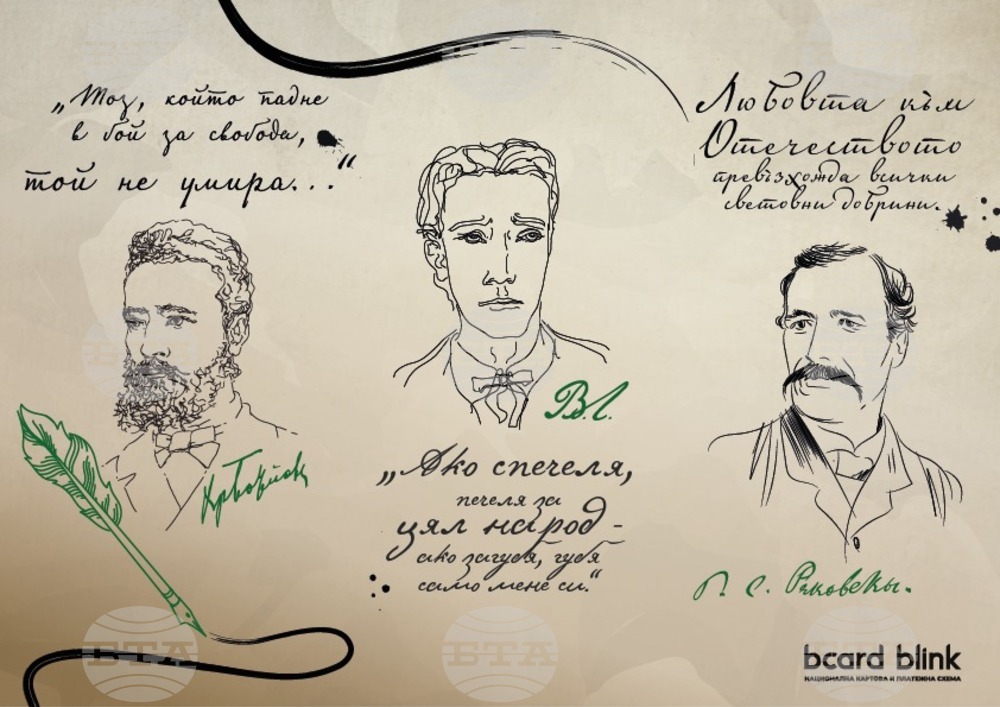 „Тоз, който падне
в бой за свобода,
той не умира..."
Любовта към
Отечеството
превъзхожда всички
световни добрини.
В.Л.
ХрБотйовъ
„Ако спечеля,
печеля за
цял народ -
ако загубя, губя
само мене си."
Г. С. Раковскы.
БТА
БТА
БТА
bcard blink
НАЦИОНАЛНА КАРТОВА И ПЛАТЕЖНА СХЕМА